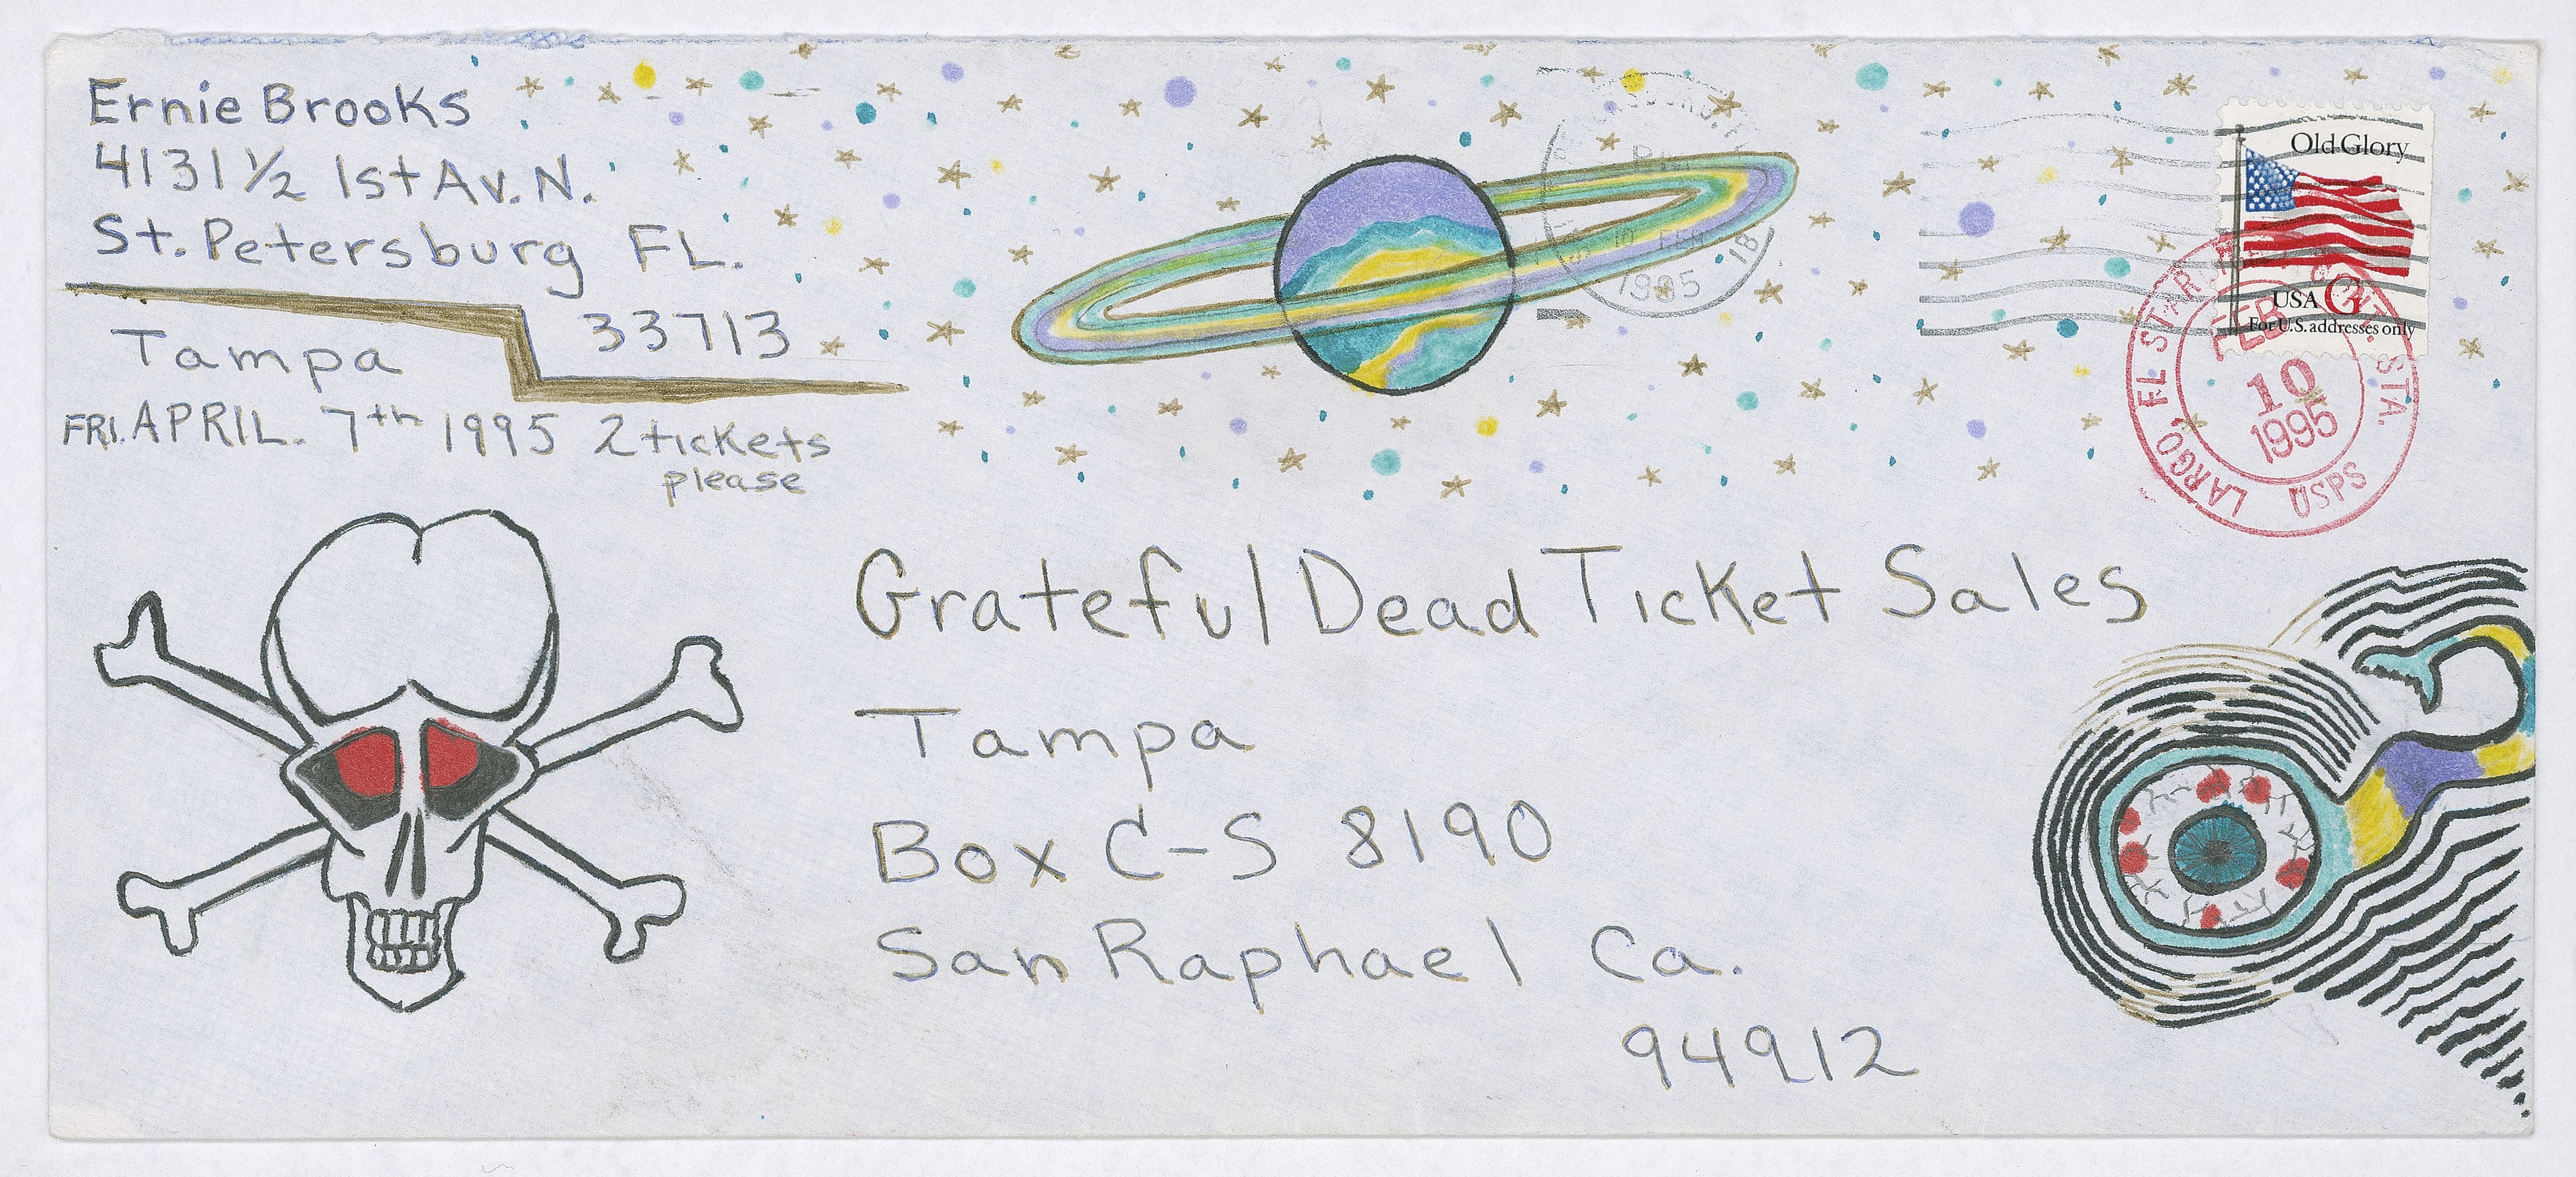 Ernie Brooks
4131 1/2 1st Av. N.
St. Petersburg FL.
33713
Tampa
FRI. APRIL. 7th 1995 2 tickets
please
PM
10 FEB
1995
Old Glory
USA G
For U.S. addresses only
LARGO, FL STA. USPS
FEB
10
1995
Grateful Dead Ticket Sales
Tampa
Box C-S 8190
San Raphael Ca.
94912